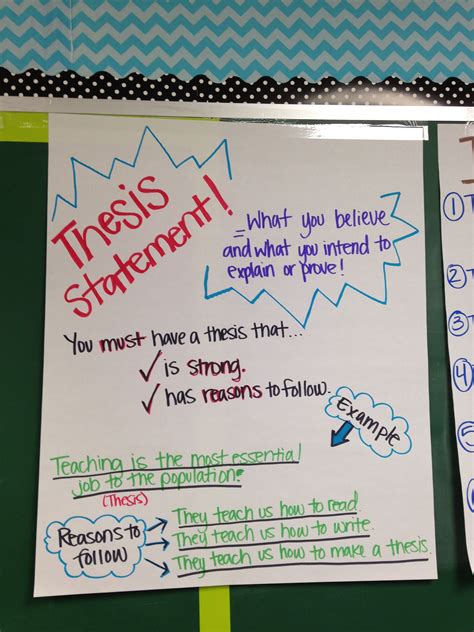 Thesis
Statement!
= What you believe
and what you intend to
explain or prove!
You must have a thesis that...
✓ is strong.
✓ has reasons to follow.
Example
Teaching is the most essential
job to the population.
(Thesis)
Reasons to
follow
They teach us how to read.
They teach us how to write.
They teach us how to make a thesis.
1
2
3
4
5
6